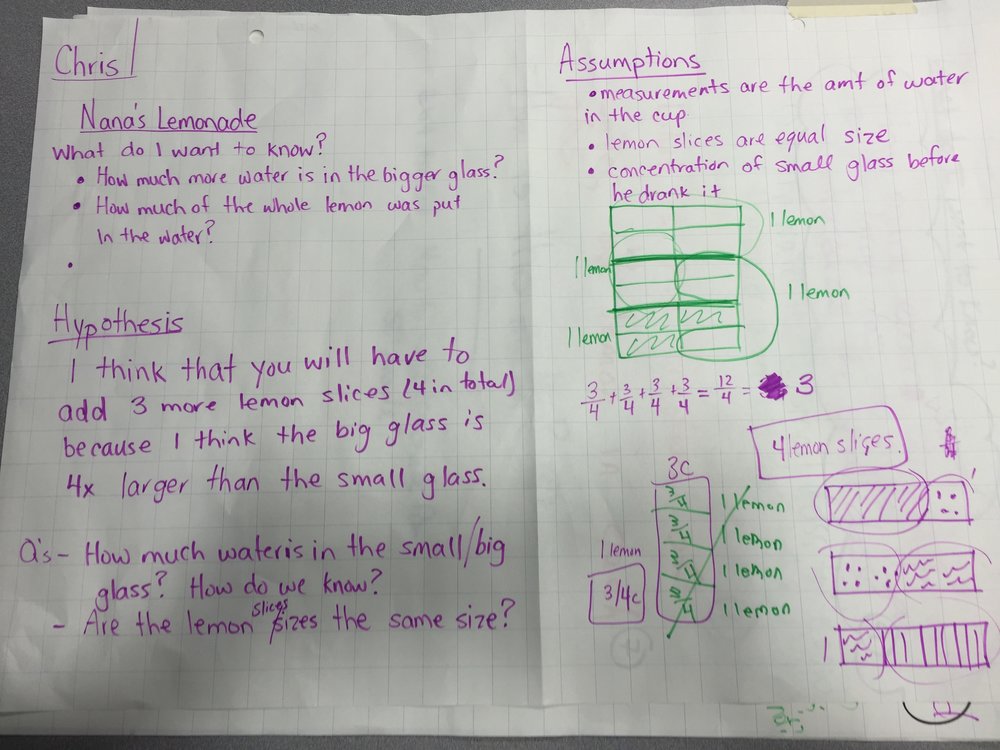 Chris
Nana's Lemonade
What do I want to know?
• How much more water is in the bigger glass?
• How much of the whole lemon was put
in the water?
•
Hypothesis
I think that you will have to
add 3 more lemon slices (4 in total)
because I think the big glass is
4x larger than the small glass.
Q's - How much water is in the small/big
glass? How do we know?
- Are the lemon slices sizes the same size?
Assumptions
• measurements are the amt of water
in the cup
• lemon slices are equal size
• concentration of small glass before
he drank it
1 lemon
1 lemon
1 lemon
1 lemon
3/4 + 3/4 + 3/4 + 3/4 = 12/4 = 3
4 lemon slices.
3C
3/4 1 lemon
3/4 1 lemon
3/4 1 lemon
3/4 1 lemon
1 lemon
3/4c